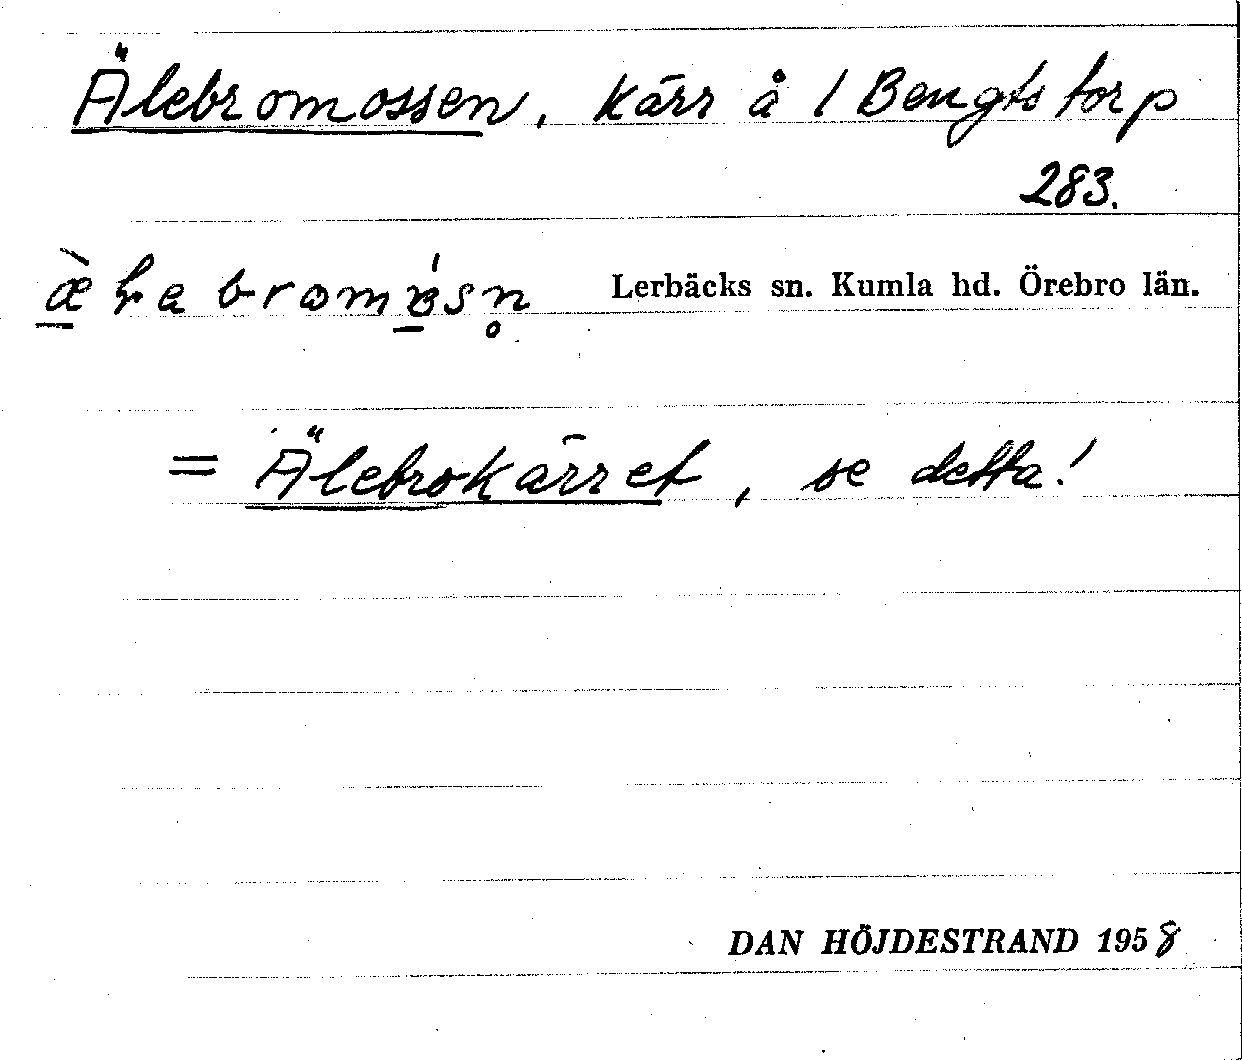 Älebromossen, kärr å 1 Bengtstorp
283.
Lerbäcks sn. Kumla hd. Örebro län.
= Älebrokärret, se detta!
DAN HÖJDESTRAND 1958